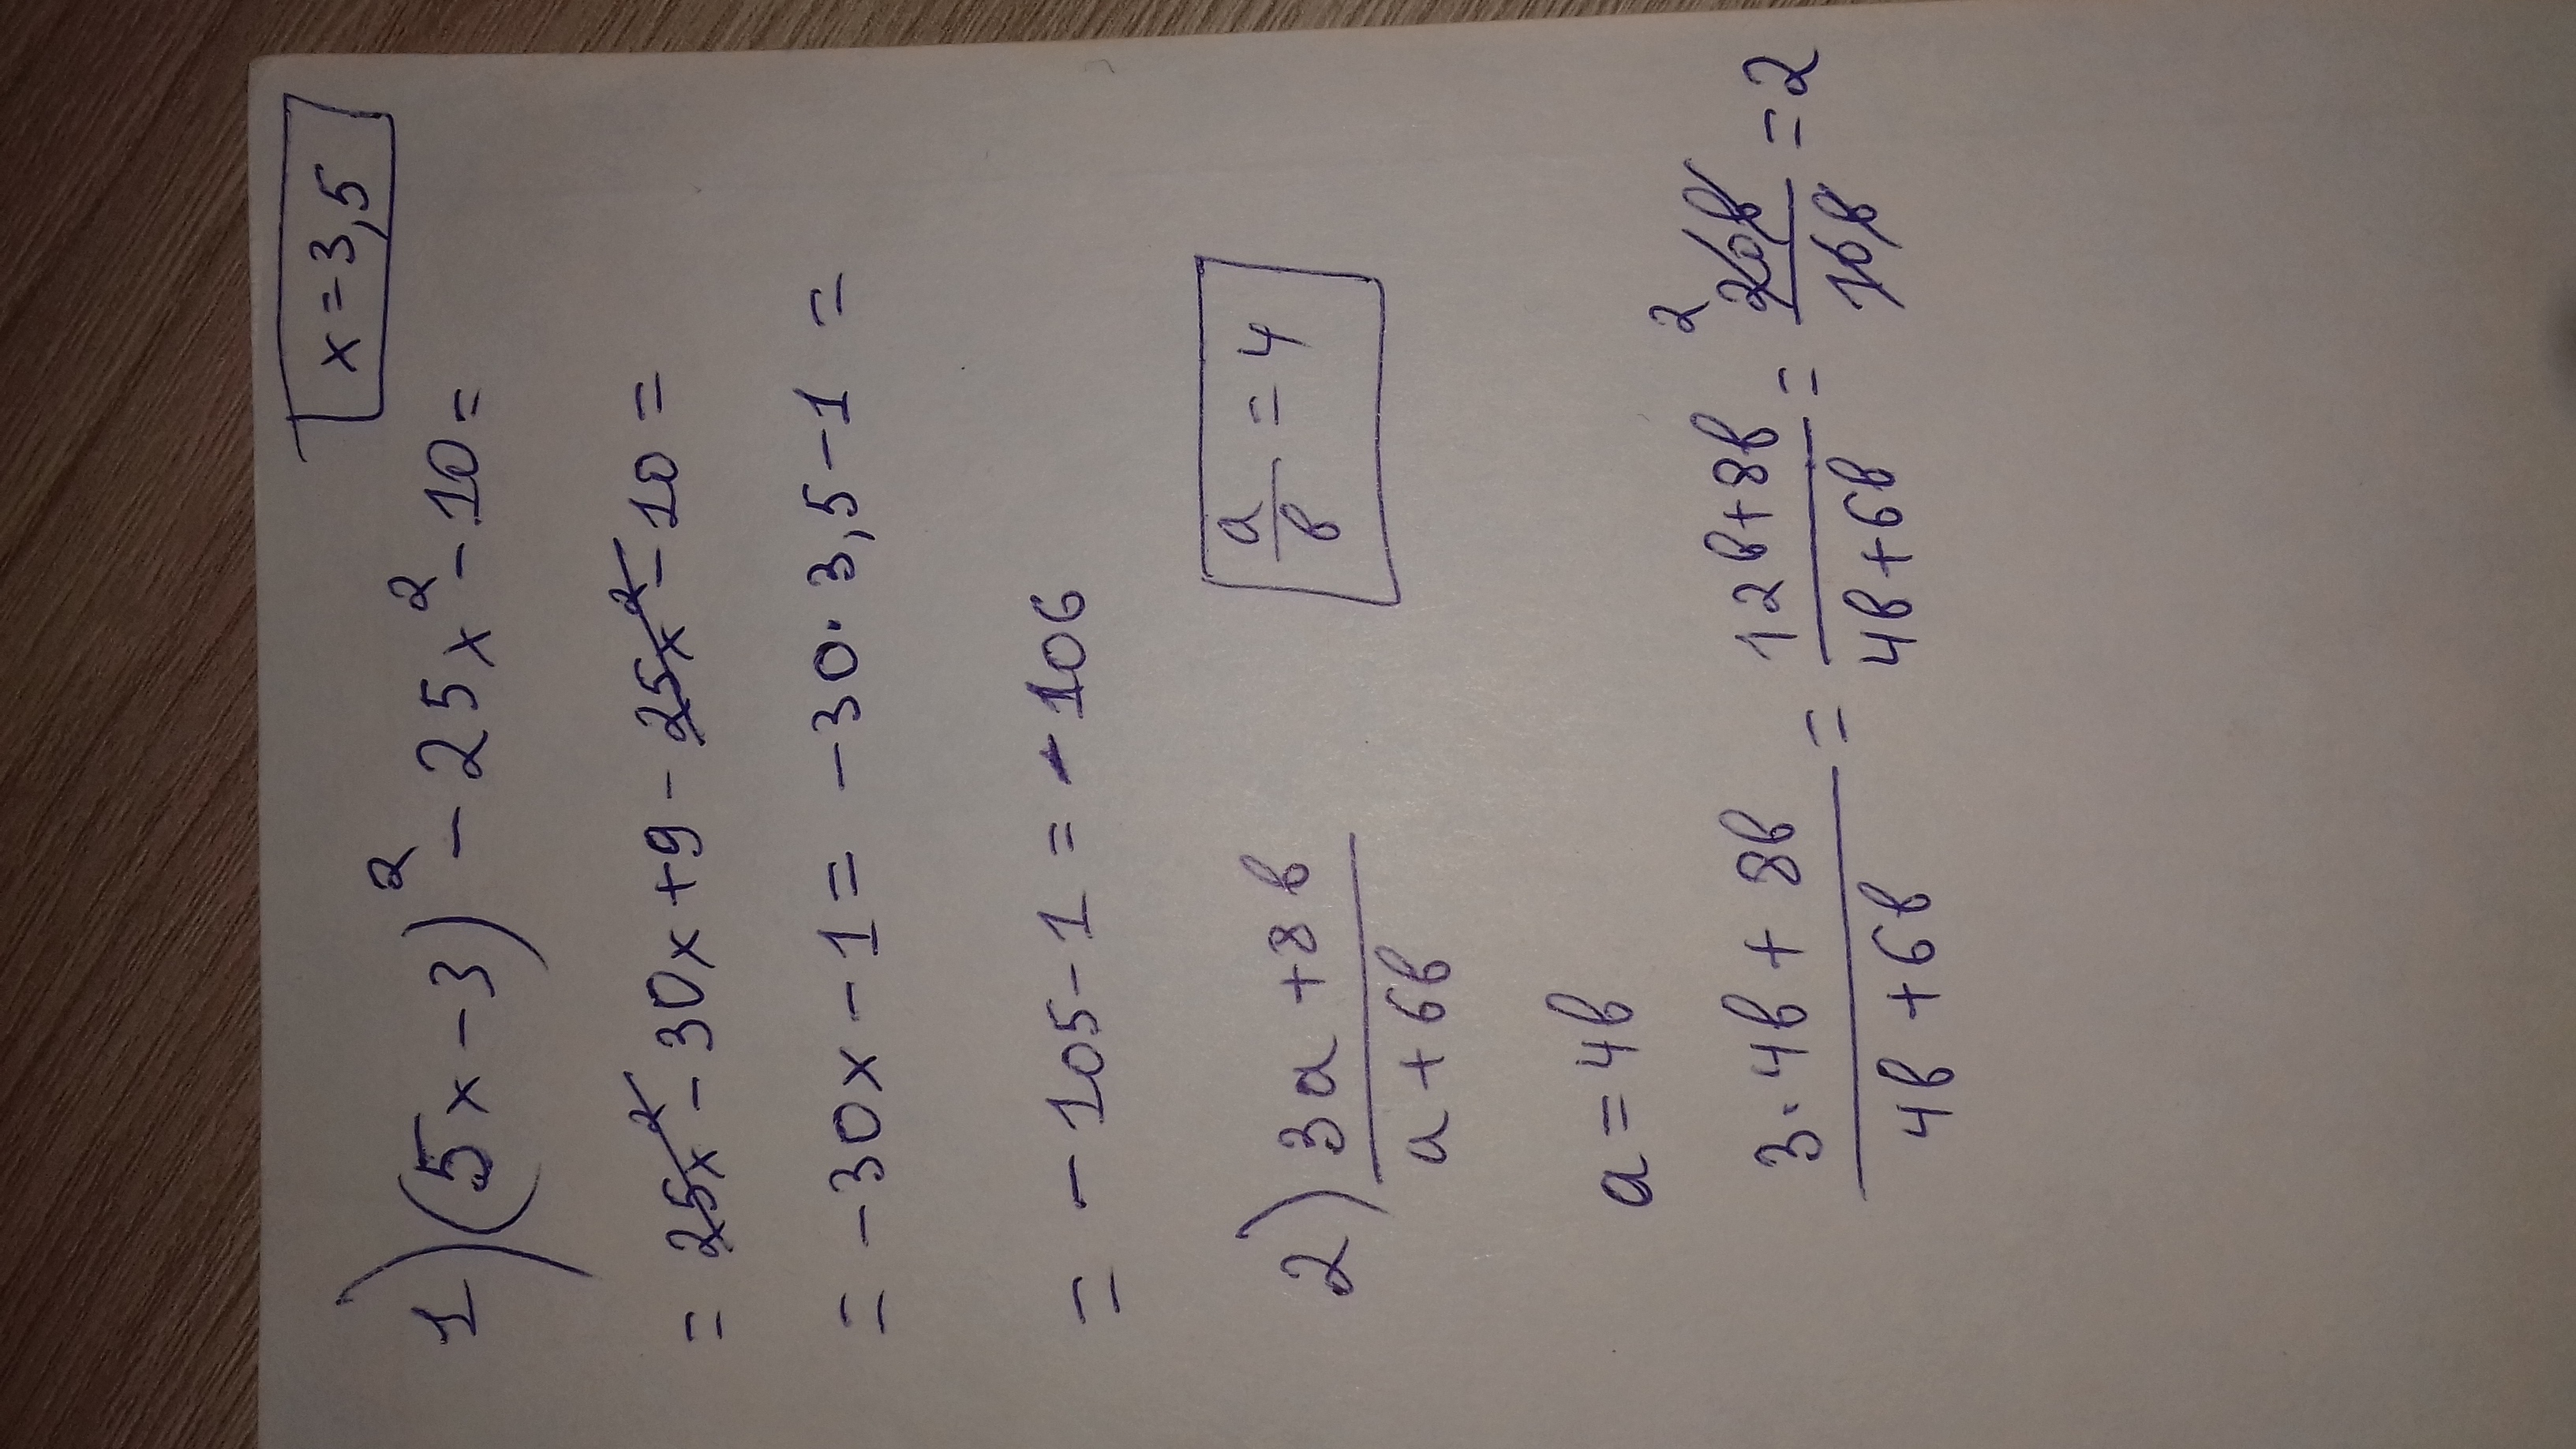 x = 3,5
1) (5x - 3)² - 25x² - 10 =
= 25x² - 30x + 9 - 25x² - 10 =
= -30x - 1 = -30 · 3,5 - 1 =
= -105 - 1 = -106
a/в = 4
2) (3a + 8в)/(a + 6в)
a = 4в
(3 · 4в + 8в)/(4в + 6в) = (12в + 8в)/(4в + 6в) = ² 20в/10в = 2